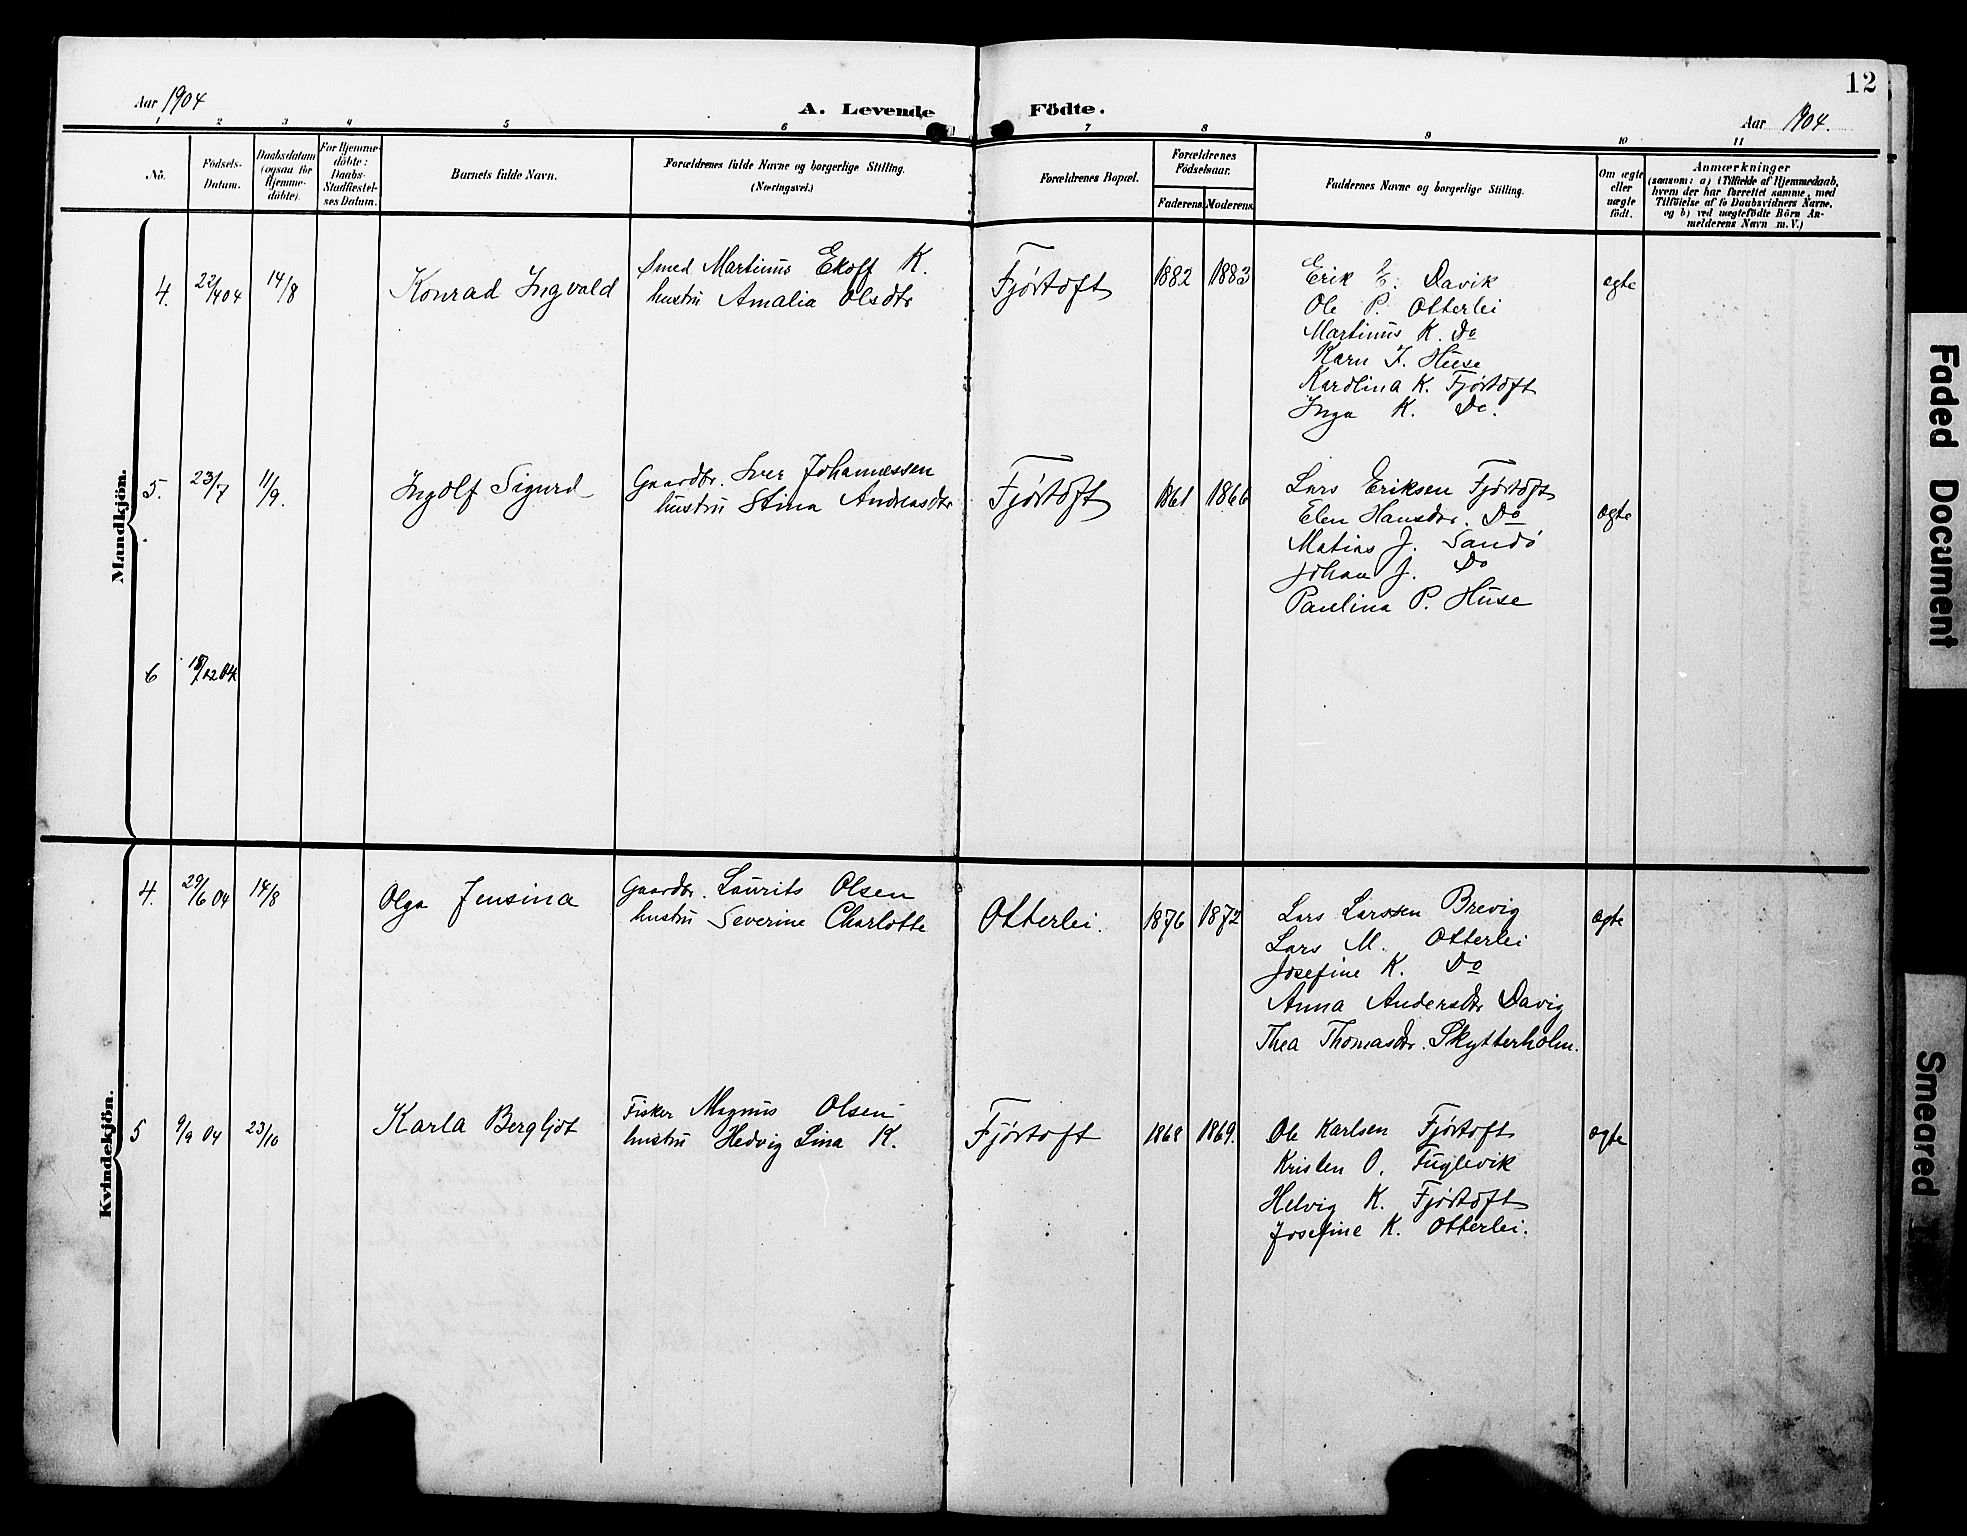 12
Aar 1904
A. Levende Födte.
Aar 1904.
1 2 3 4 5 6 7 8 9 10 11
No.
Födsels-Datum.
Daabsdatum (ogsaa för Hjemme-döbte).
For Hjemme-döbte: Daabs-Stadfæstel-ses Datum.
Barnets fulde Navn.
Forældrenes fulde Navne og borgerlige Stilling.
(Næringsvei.)
Forældrenes Bopæl.
Forældrenes Födselsaar.
Faderens Moderens
Faddernes Navne og borgerlige Stilling.
Om ægte eller uægte födt.
Anmærkninger
(saasom: a) i Tilfælde af Hjemmedaab,
hvem der har forrettet samme, med
Tilföielse af to Daabsvidners Navne,
og b) ved uægtefödte Börn An-
melderens Navn m.V.)
Mandkjön.
4. 22/4 04 14/8 Konrad Ingvald
Smed Martinus Ekoff K.
hustru Amalia Olsdtr
Fjörtoft 1882 1883
Erik E. Davik
Ole P. Otterlei
Martinus K. Do
Karn I. Huse
Karolina K. Fjörtoft
Inga K. Do.
ægte
5. 23/7 11/9. Ingolf Sigurd
Gaardbr. Iver Johannessen
hustru Stina Andreasdtr
Fjörtoft 1861 1866
Lars Eriksen Fjörtoft
Elen Hansdtr. Do
Matias J. Sandö
Johan J. Do
Paulina P. Huse
ægte
6 18/12 04
Kvindekjön.
4. 29/6 04 14/8 Olga Jensina
Gaardbr. Laurits Olsen
hustru Severine Charlotte
Otterlei. 1876 1872
Lars Larssen Brevig
Lars M. Otterlei
Josefine K. Do
Anna Andersdtr Davig
Thea Thomasdtr. Skytterholm.
ægte
5 9/9 04 23/10 Karla Bergljot
Fisker Magnus Olsen
hustru Hedvig Lina K.
Fjörtoft 1868 1869.
Ole Karlsen Fjörtoft
Kristen O. Fuglevik
Helvig K. Fjörtoft
Josefine K. Otterlei.
ægte
Faded Document
Smeared